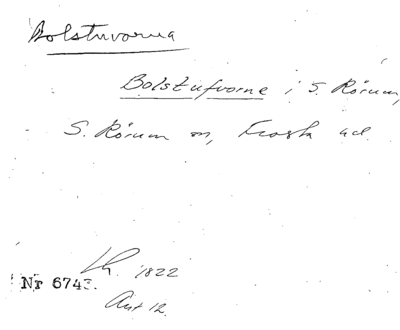 Bolstuvorna
Bolstufvorne i S. Rörum,
S. Rörum sn, Frosta hd
Lk. 1822
Nr 6743.
Akt 12.